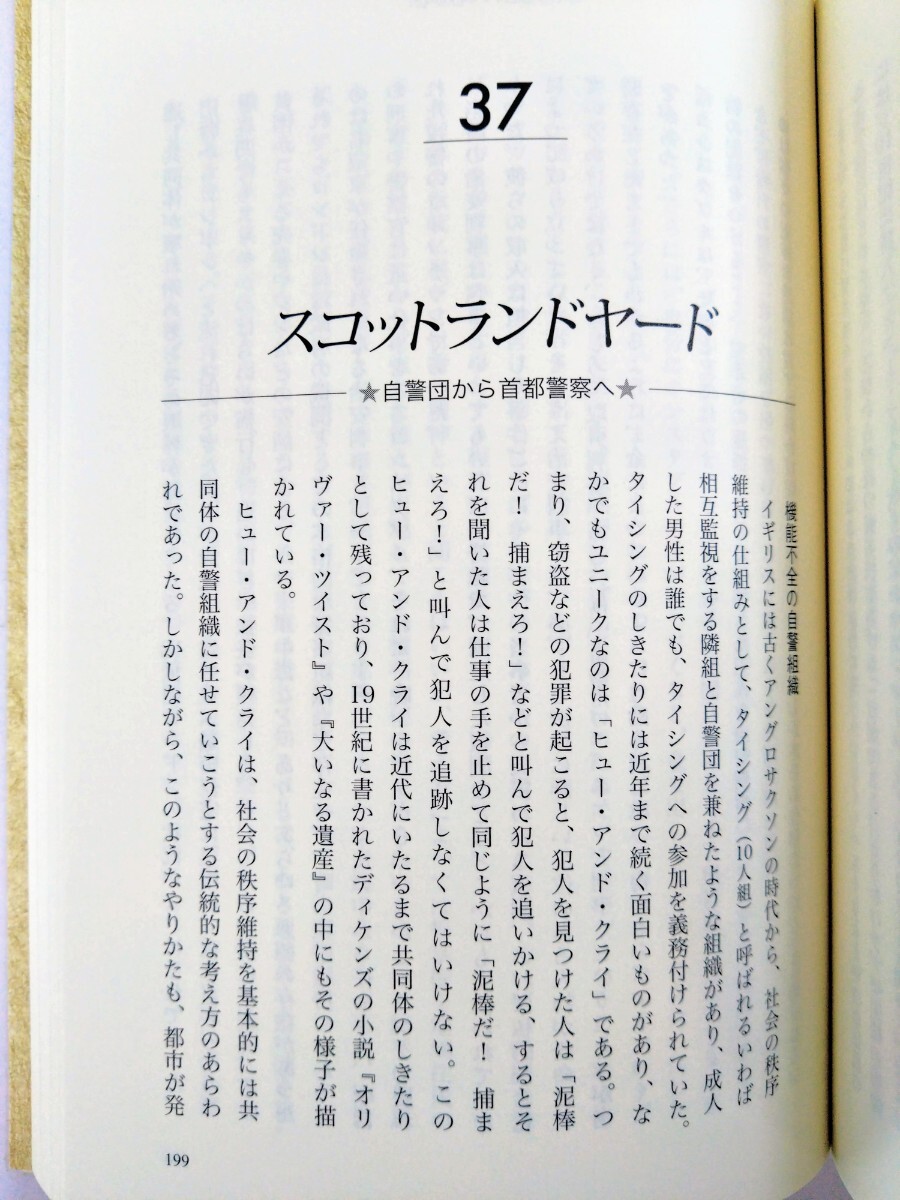 37
スコットランドヤード
★自警団から首都警察へ★
機能不全の自警組織
イギリスには古くアングロサクソンの時代から、社会の秩序
維持の仕組みとして、タイシング（10人組）と呼ばれるいわば
相互監視をする隣組と自警団を兼ねたような組織があり、成人
した男性は誰でも、タイシングへの参加を義務付けられていた。
タイシングのしきたりには近年まで続く面白いものがあり、な
かでもユニークなのは「ヒュー・アンド・クライ」である。つ
まり、窃盗などの犯罪が起こると、犯人を見つけた人は「泥棒
だ！　捕まえろ！」などと叫んで犯人を追いかける、するとそ
れを聞いた人は仕事の手を止めて同じように「泥棒だ！　捕ま
えろ！」と叫んで犯人を追跡しなくてはいけない。この
ヒュー・アンド・クライは近代にいたるまで共同体のしきたり
として残っており、19世紀に書かれたディケンズの小説『オリ
ヴァー・ツイスト』や『大いなる遺産』の中にもその様子が描
かれている。
ヒュー・アンド・クライは、社会の秩序維持を基本的には共
同体の自警組織に任せていこうとする伝統的な考え方のあらわ
れであった。しかしながら、このようなやりかたも、都市が発
199